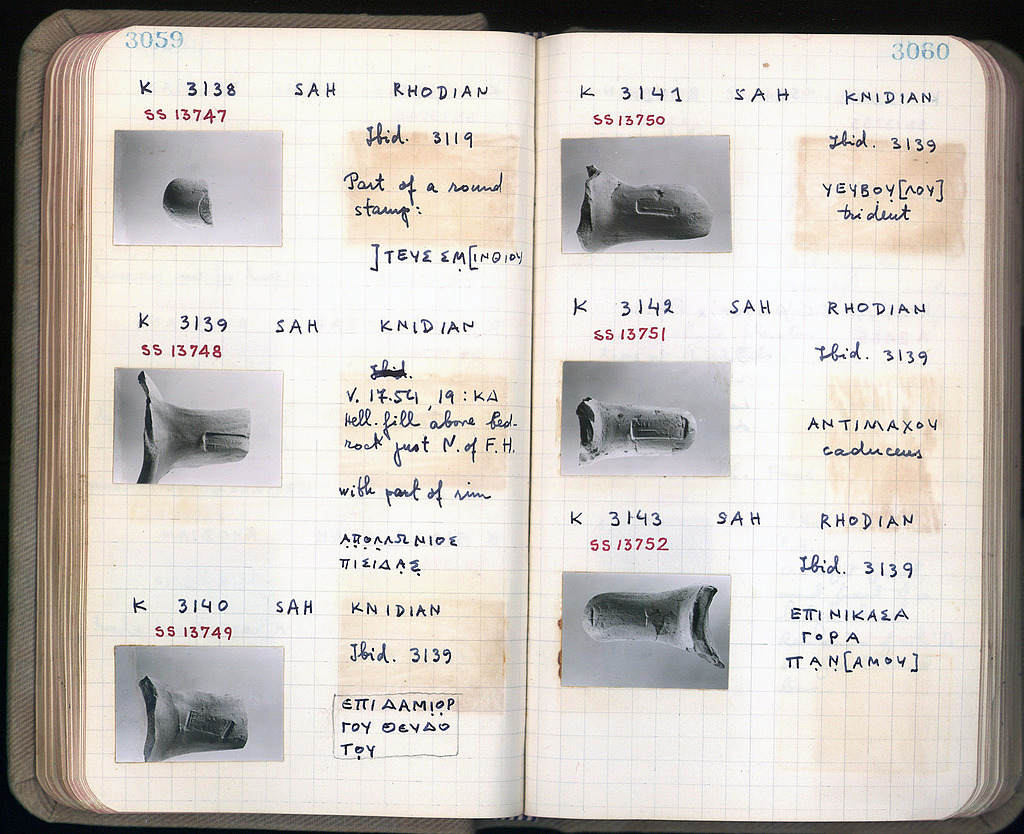 3059
K 3138 SAH RHODIAN
SS 13747
Ibid. 3119
Part of a round
stamp:
]ΤΕΥΣ ΣΜ̣[ΙΝΘΙΟΥ
K 3139 SAH KNIDIAN
SS 13748
V. 17.54, 19 : ΚΔ
Hell. fill above bed-
rock just N. of F.H.
with part of rim
Α̣Π̣Ο̣Λ̣ΛΩΝΙΟΣ
ΠΙΣΙΔΑ̣Σ̣
K 3140 SAH KNIDIAN
SS 13749
Ibid. 3139
ΕΠΙ ΔΑΜΙ̣Ο̣Ρ
ΓΟΥ ΘΕΥΔΟ
ΤΟ̣Υ
3060
K 3141 SAH KNIDIAN
SS 13750
Ibid. 3139
ΥΕΥΒΟΥ̣[ΛΟΥ]
trident
K 3142 SAH RHODIAN
SS 13751
Ibid. 3139
ΑΝΤΙΜΑΧΟΥ
caduceus
K 3143 SAH RHODIAN
SS 13752
Ibid. 3139
ΕΠΙ ΝΙΚΑΣΑ
ΓΟΡΑ
ΠΑ̣Ν̣[ΑΜΟΥ]